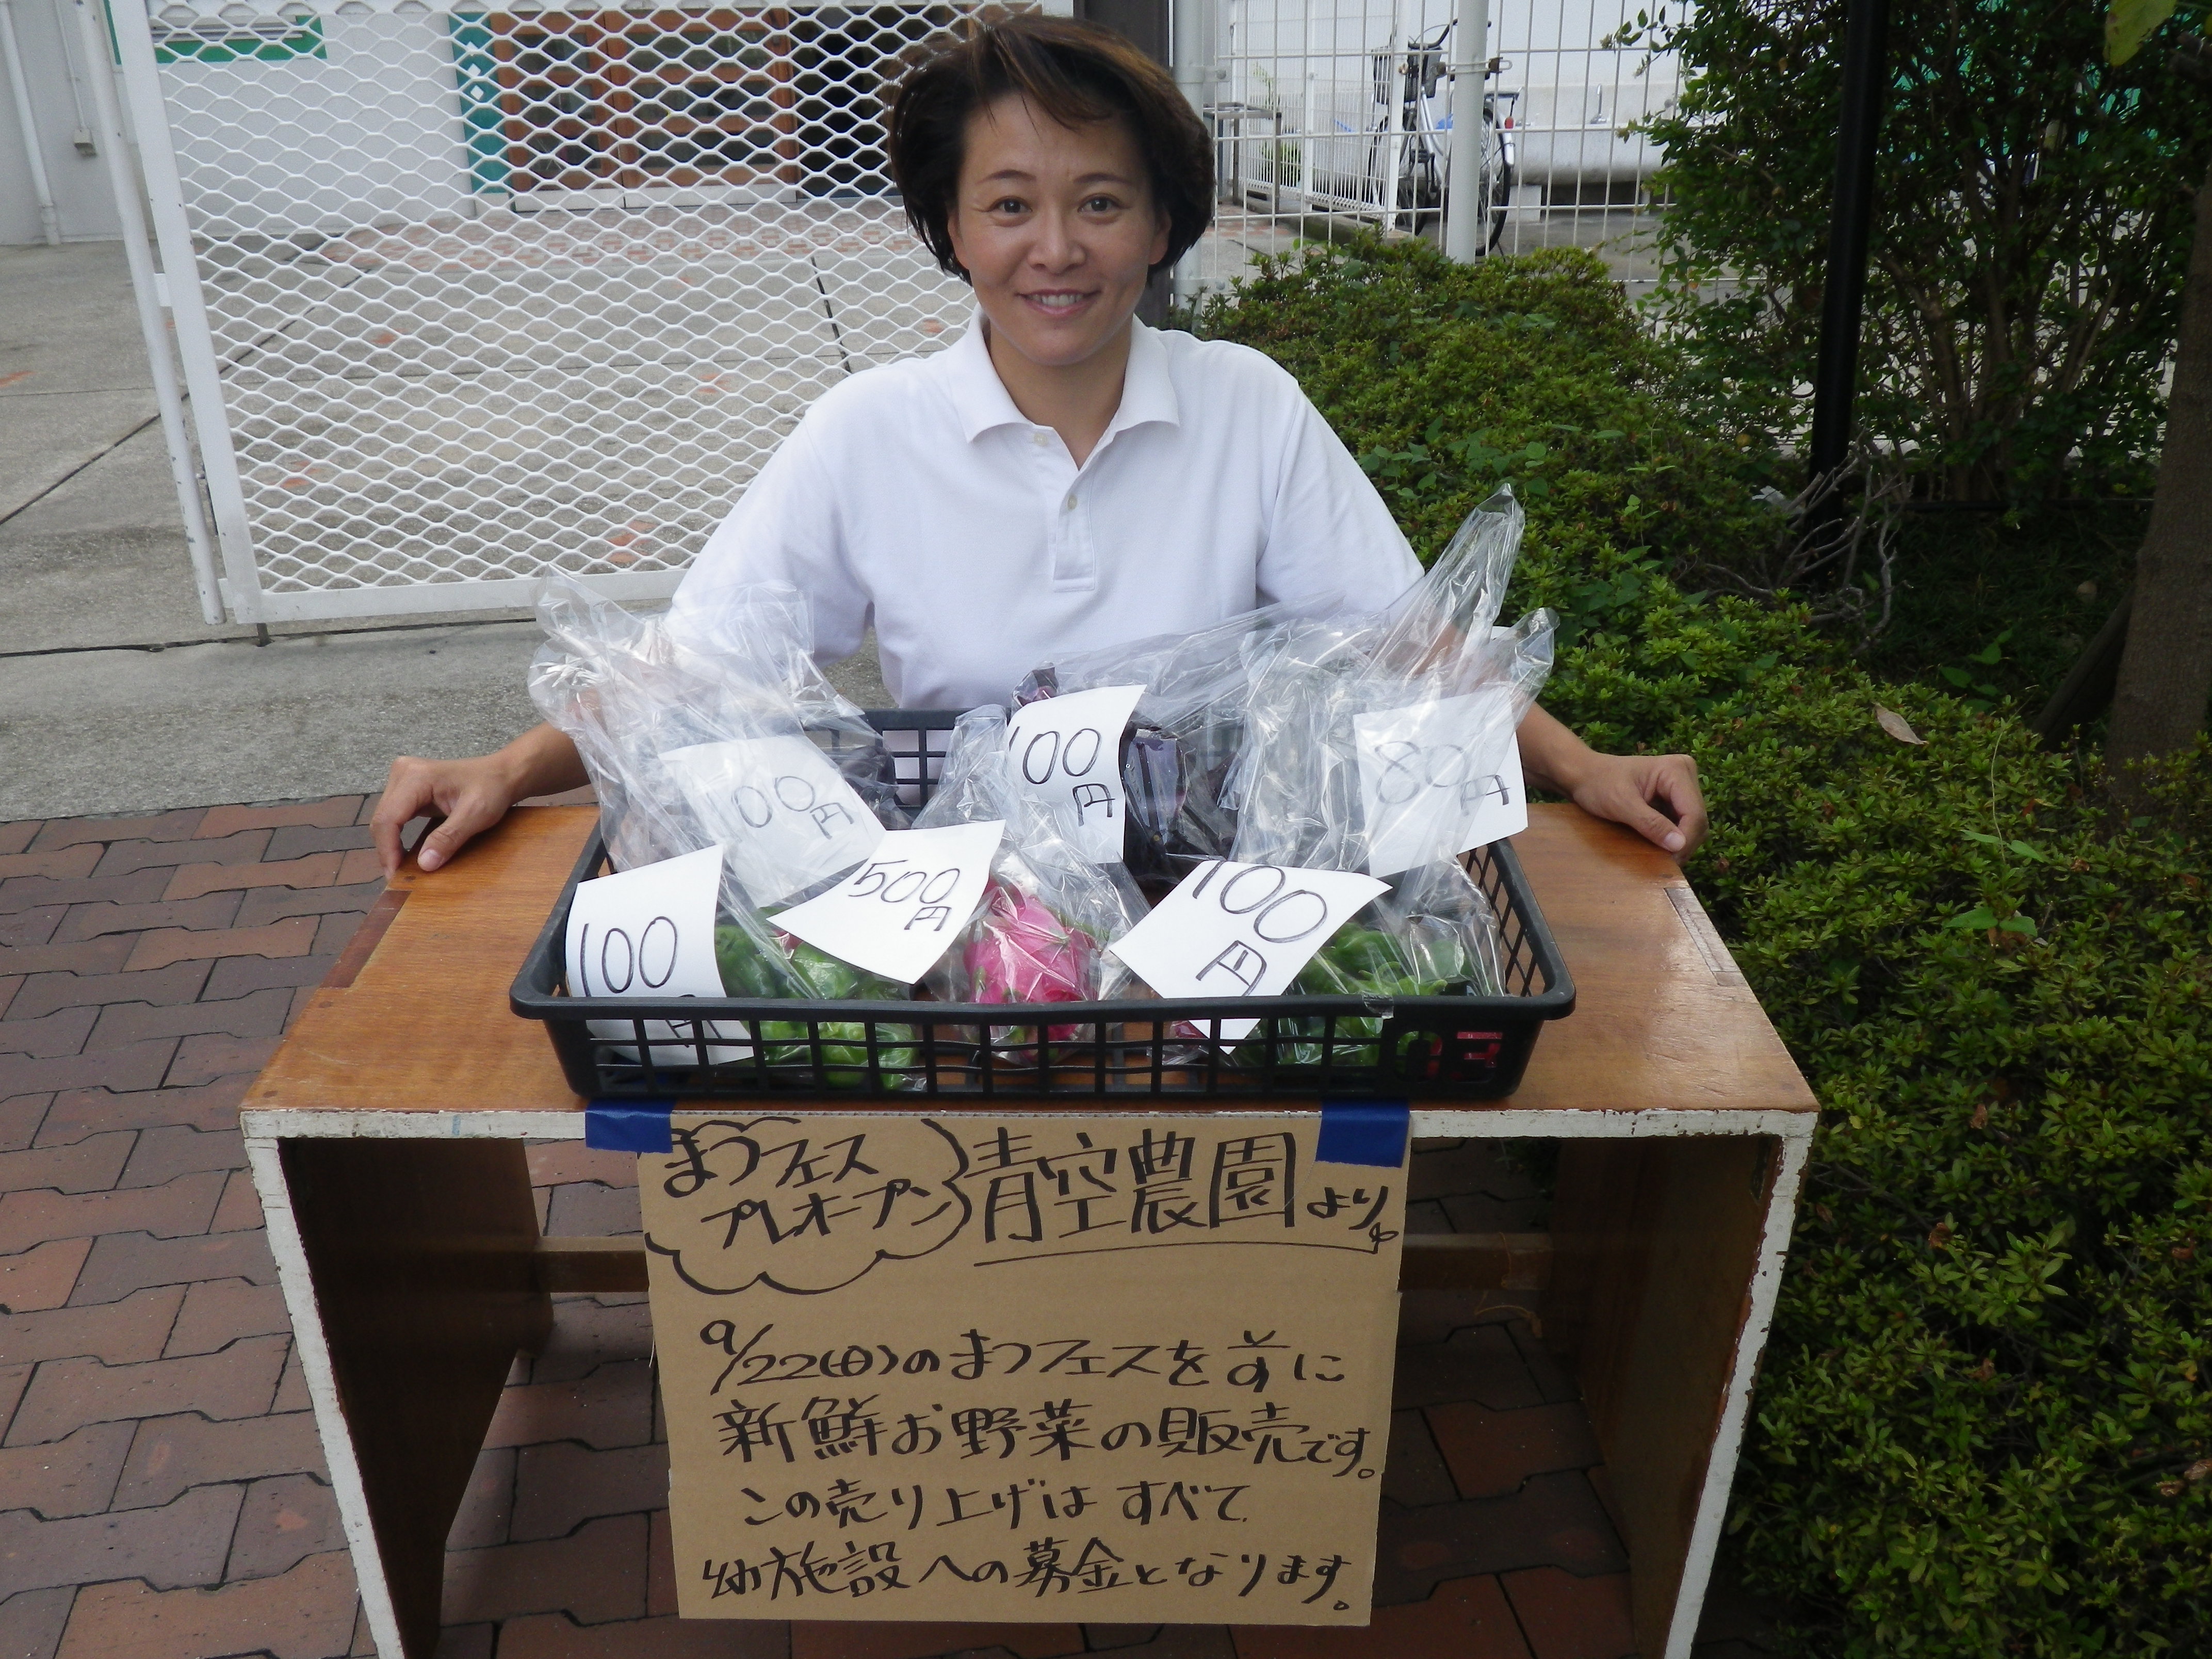 100円
100円
80円
500円
100円
100円
03
まつフェス
プレオープン
青空農園より
9/22(日)のまつフェスを前に
新鮮お野菜の販売です。
この売り上げはすべて
幼施設への募金となります。